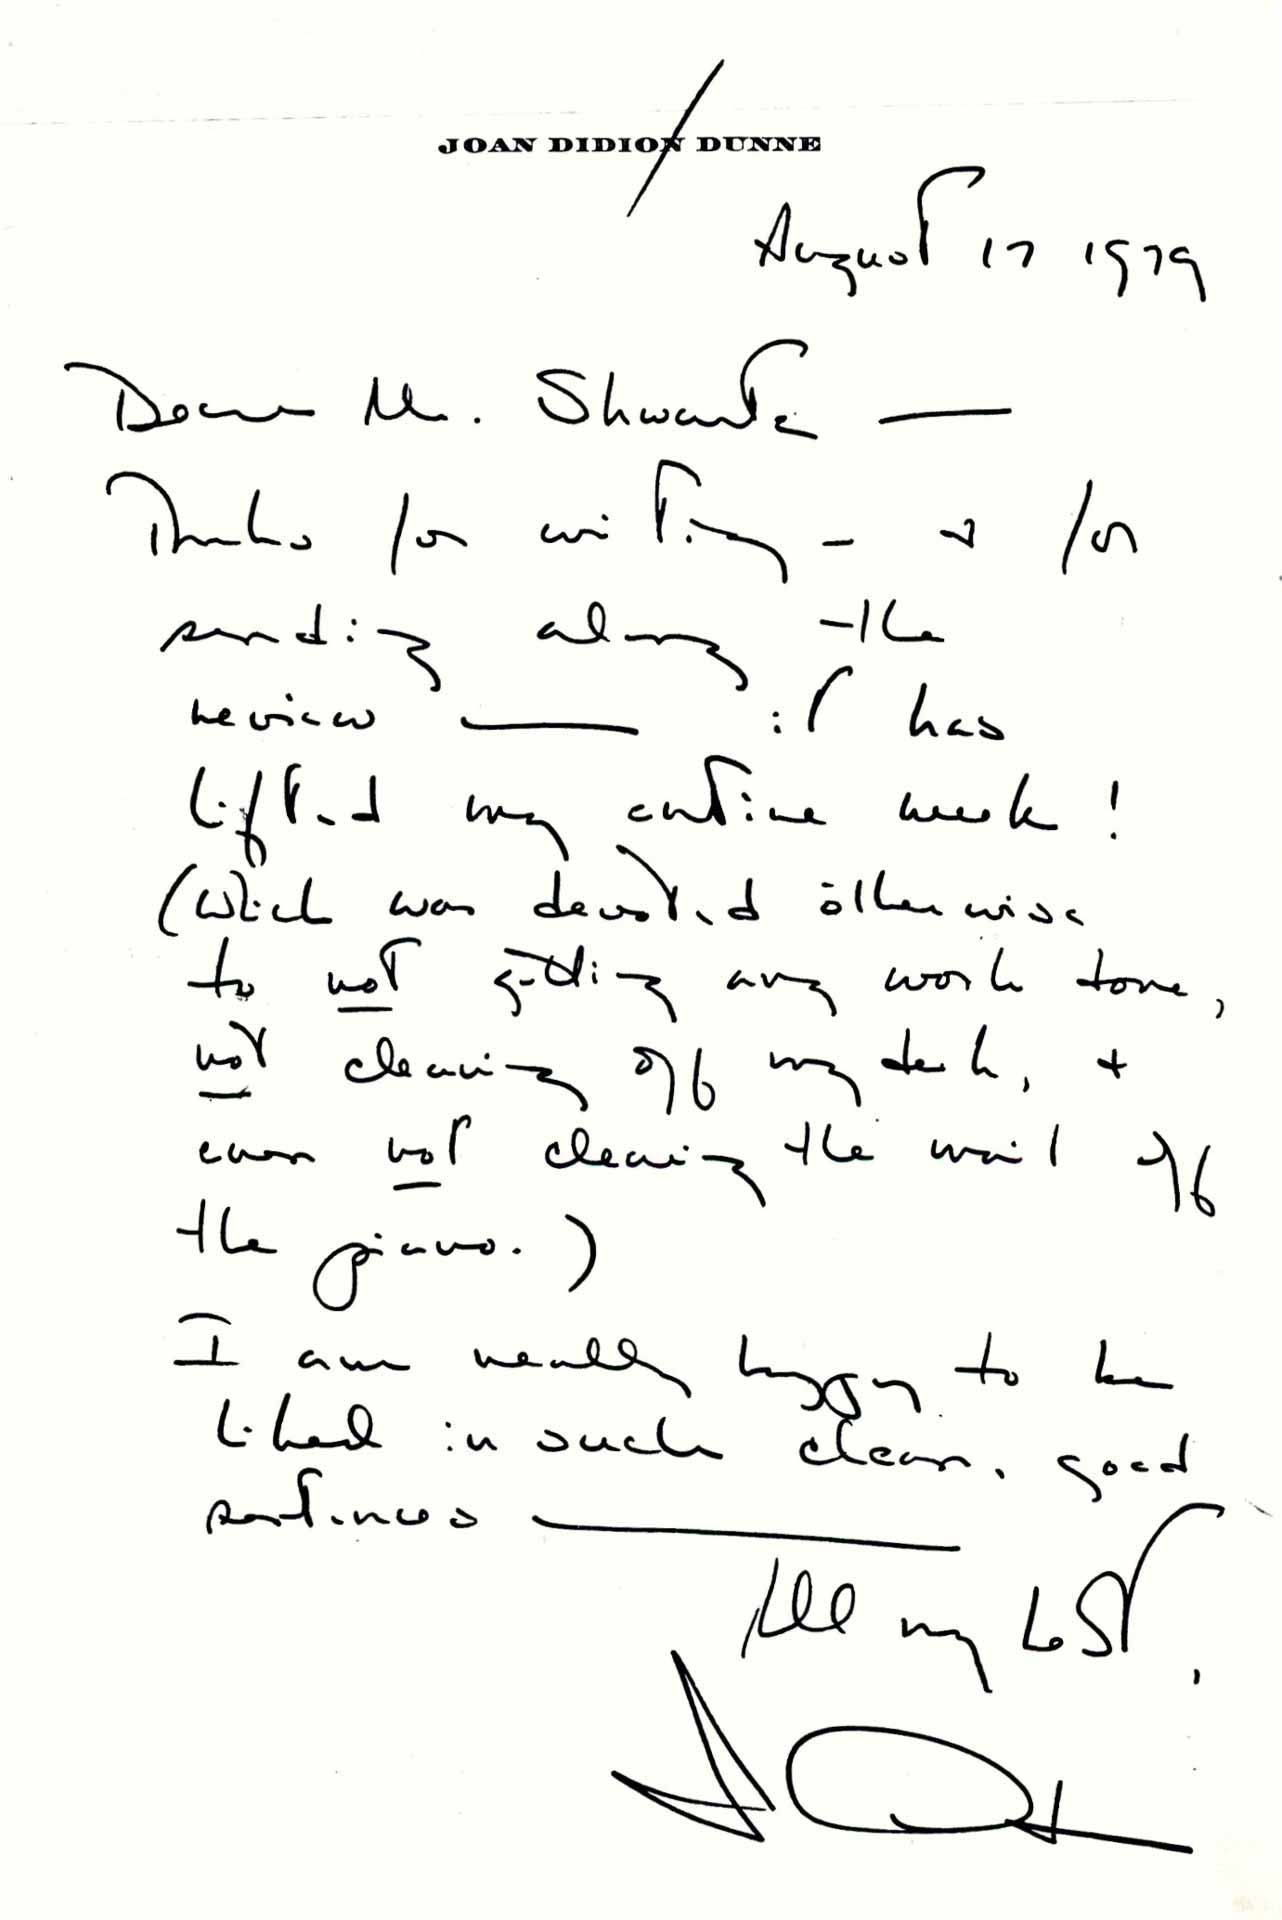 JOAN DIDION DUNNE
August 17 1979
Dear Mr. Shwartz —
Thanks for writing – & for
sending along the
review — it has
lifted my entire week!
(Which was devoted otherwise
to not getting any work done,
not clearing off my desk, &
even not clearing the mail off
the piano.)
I am really happy to be
liked in such clean, good
sentences —
All my best,